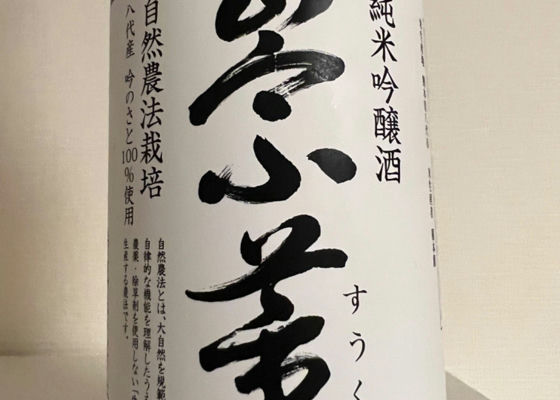 純米吟醸酒
崇薫
すうく
自然農法栽培
八代産 吟のさと100%使用
自然農法とは、大自然を規範
自律的な機能を理解したうえ
農薬・除草剤を使用しない
生産する農法です。